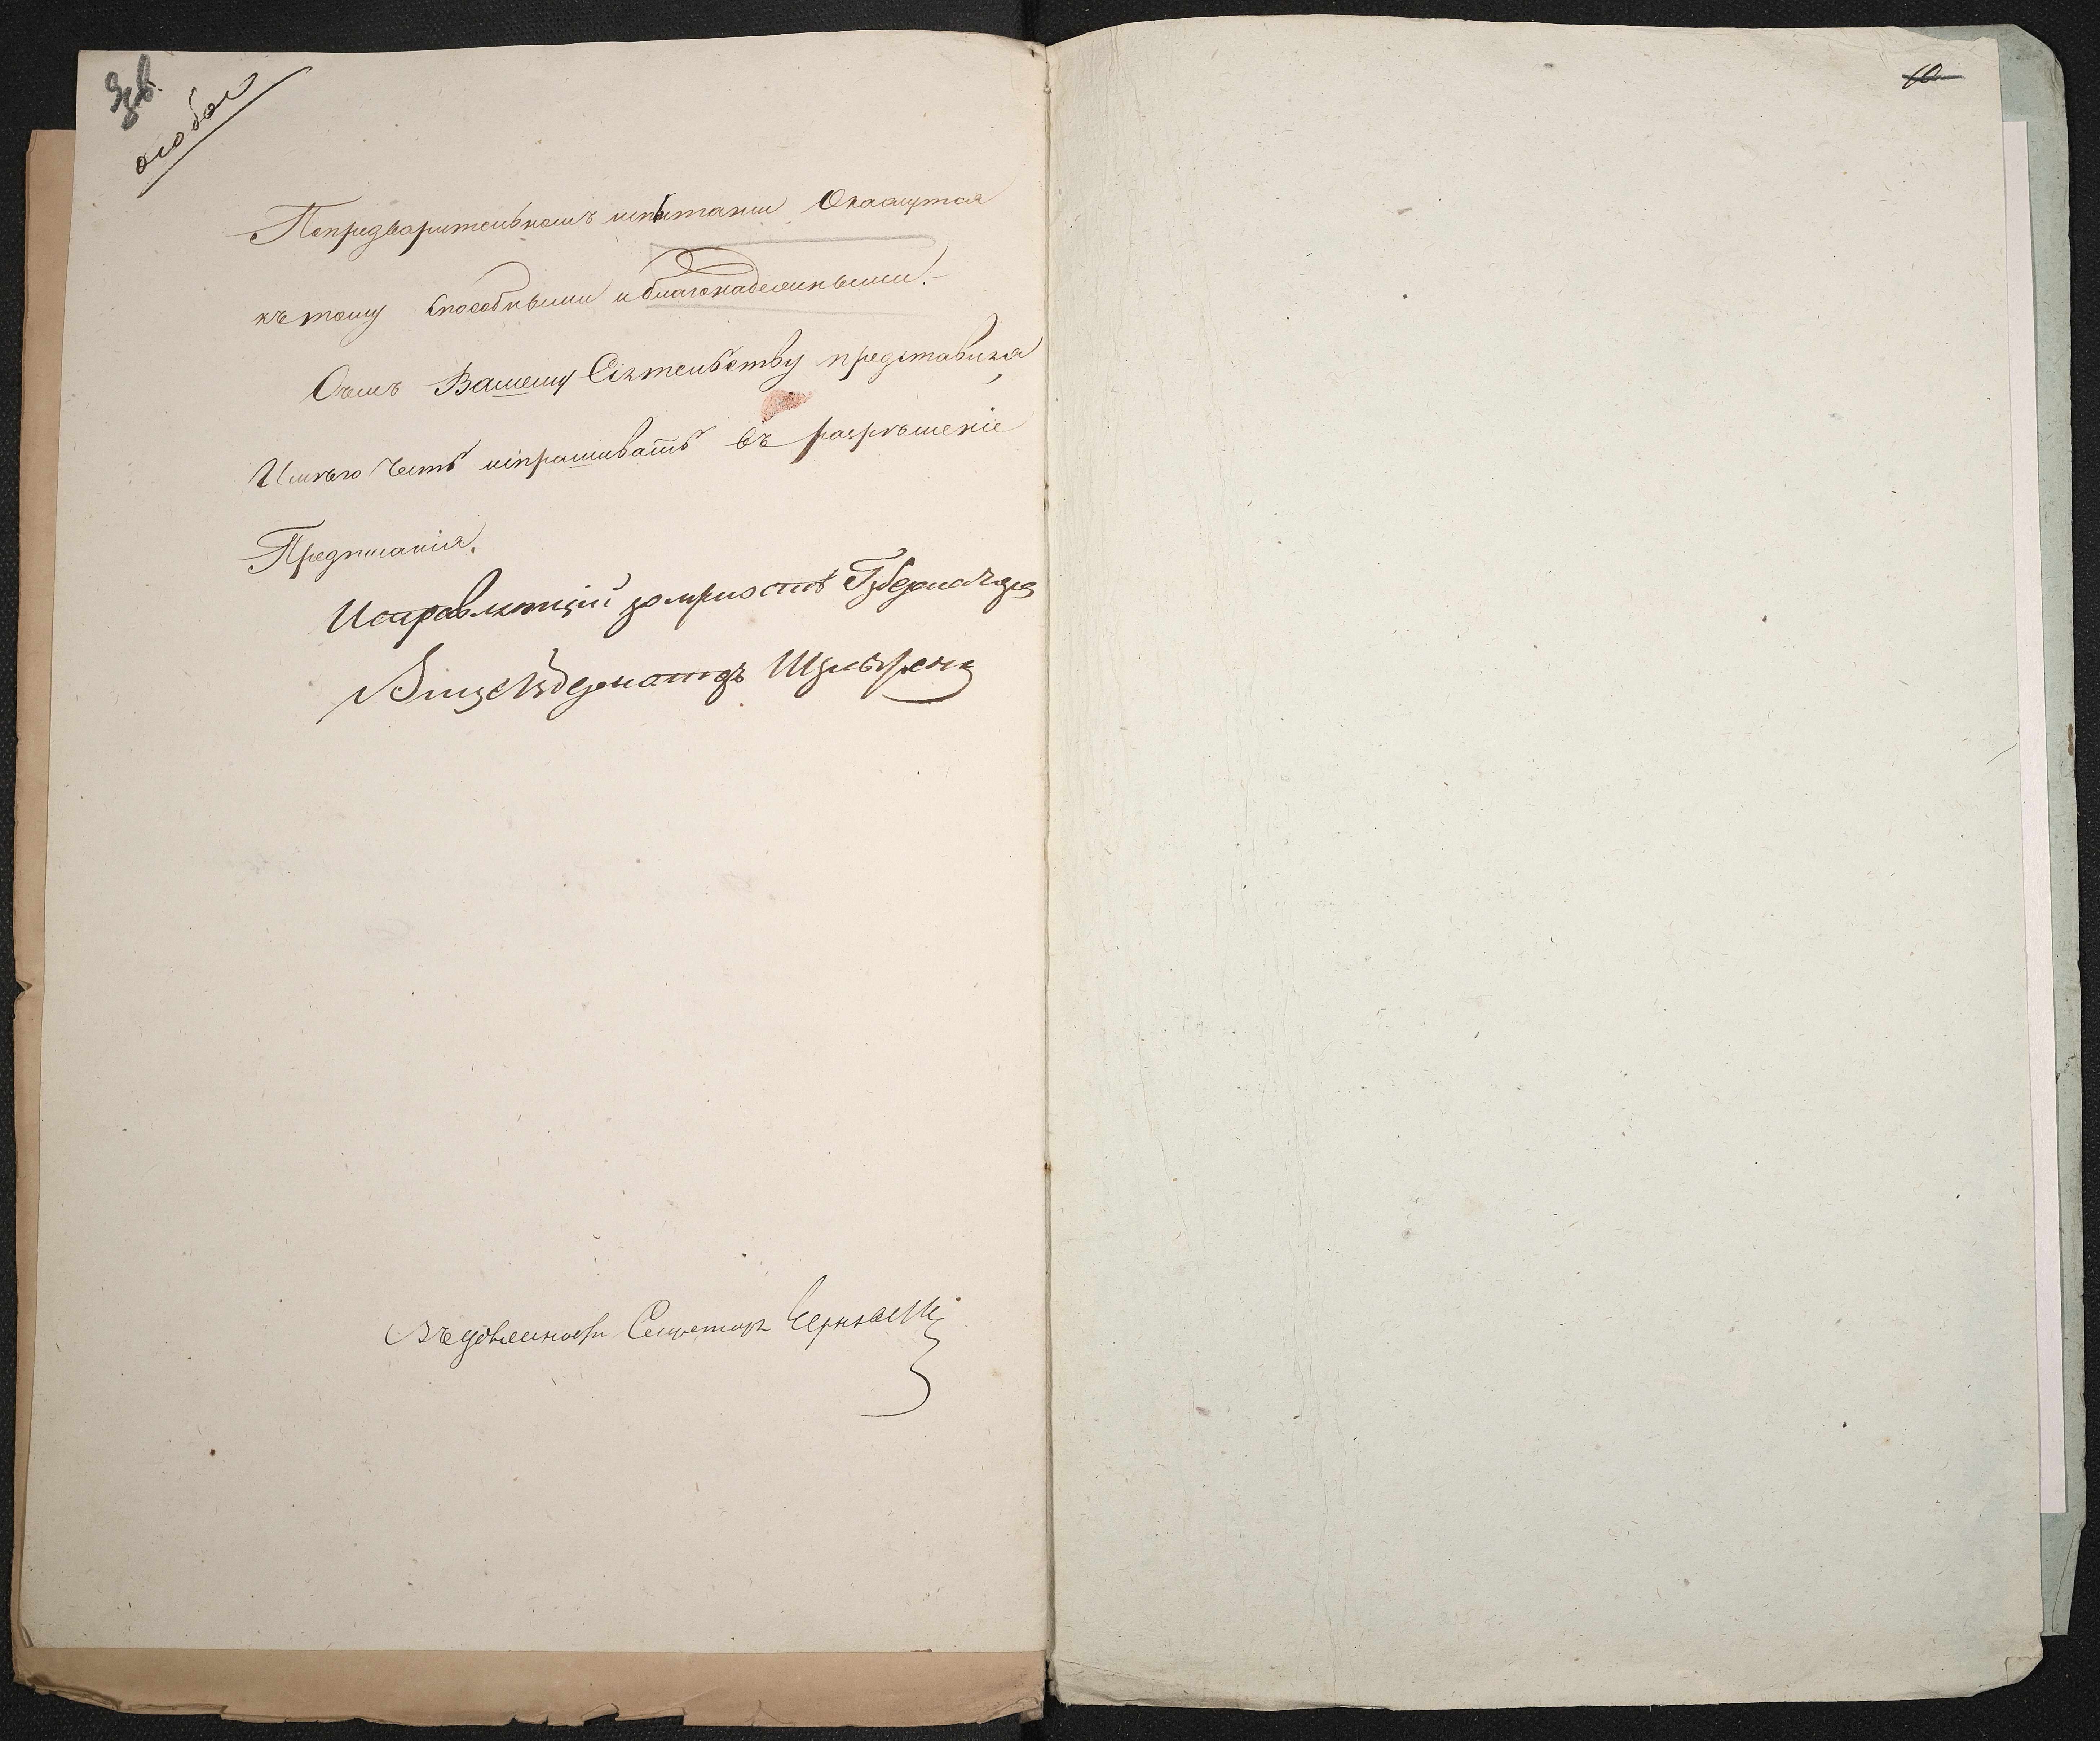 особое
10
Попредварительномъ испытаніи Окажутся
къ тому способными и благонадежными.-
О чемъ Вашему Сіятельству представляя,
Имѣю честь испрашивать въ разрѣшеніе
Предписанія.
Исправляющій должность Губернатора
Вице Губернаторъ
Въ должности Секретаря